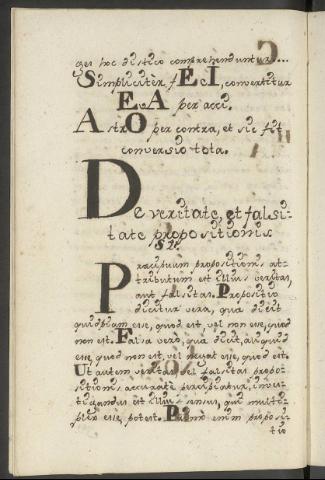 ges hoc distico comprehenduntur...
Simplicitèr fEcI, convertitur
EvA per acci.
AstrO per contra, et sic fit
conversio tota.
De veritate, et falsi-
tate propositionis
§ 1.
Præcipuum propositionis at-
tributum est illius veritas,
aut falsitas. Propositio
dicitur vera, quæ dicit
quidpiam esse, quod est vel non esse, quod
non est. Falsa verò, quæ dicit, aliquid
esse, quod non est, vel negat esse, quod est.
Ut autem veritas, vel falsitas propo-
sitionis accuratè percipiatur, inves-
tigandus est illius sensus, qui multi-
plex esse potest. Primò enim proposi-
tio